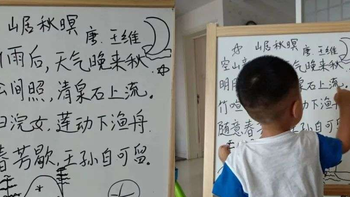 山居秋暝 唐 王维
雨后,天气晚来秋.
间照,清泉石上流.
归浣女,莲动下渔舟.
春芳歇,王孙自可留.
山居秋暝 唐 王维
空山 晚来秋
明月 石上流
竹喧 动下渔舟
随意春 孙自可留